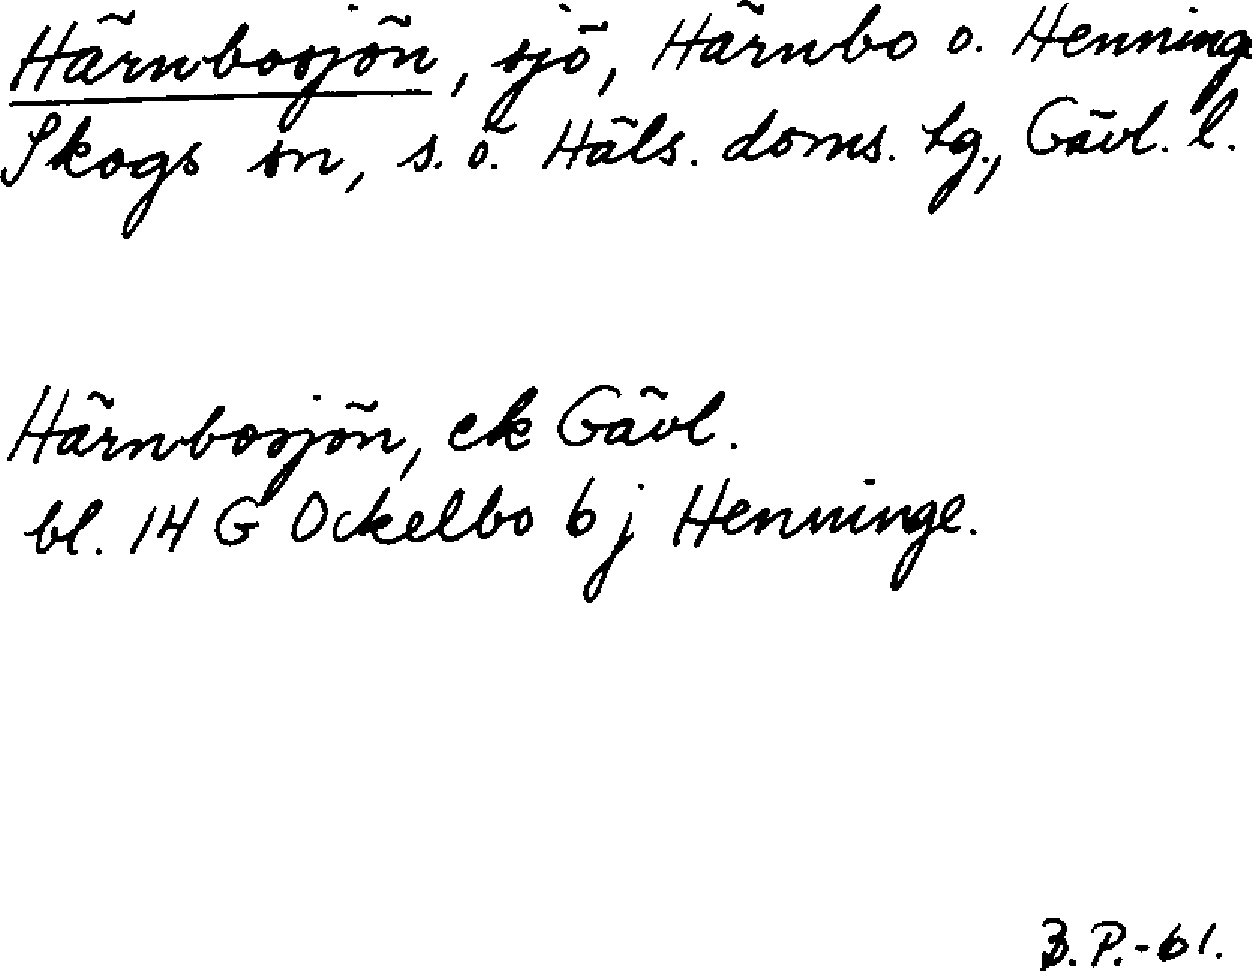 Härnbosjön, sjö, Härnbo o. Henninge
Skogs sn, s. ö. Häls. doms. tg., Gävl. l.
Härnbosjön, ek Gävl.
bl. 14 G Ockelbo 6 j Henninge.
B. P. -61.